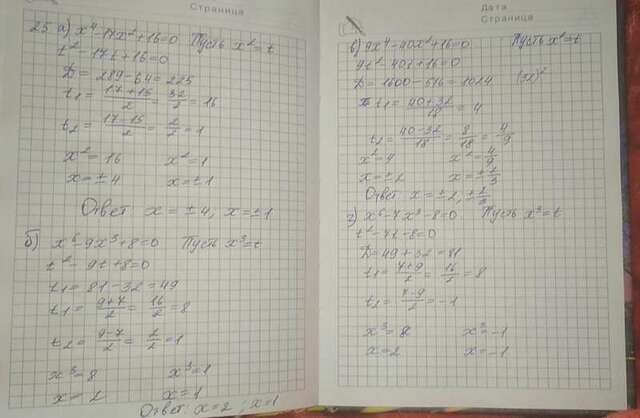 Страница
25 а) x⁴-17x²+16=0 Пусть x²=t
t²-17t+16=0
D=289-64=225
t₁=(17+15)/2=32/2=16
t₂=(17-15)/2=2/2=1
x²=16 x²=1
x=±4 x=±1
Ответ x=±4, x=±1
б) x⁶-9x³+8=0 Пусть x³=t
t²-9t+8=0
t₁=81-32=49
t₁=(9+7)/2=16/2=8
t₂=(9-7)/2=2/2=1
x³=8 x³=1
x=2 x=1
Ответ: x=2; x=1
Дата
Страница
в) 9x⁴-40x²+16=0 Пусть x²=t
9t²-40t+16=0
D=1600-576=1024 (32)²
t₁=(40+32)/18=4
t₂=(40-32)/18=8/18=4/9
x²=4 x²=4/9
x=±2 x=±2/3
Ответ x=±2, ±2/3
г) x⁶-7x³-8=0 Пусть x³=t
t²-7t-8=0
D=49+32=81
t₁=(7+9)/2=16/2=8
t₂=(7-9)/2=-1
x³=8 x³=-1
x=2 x=-1